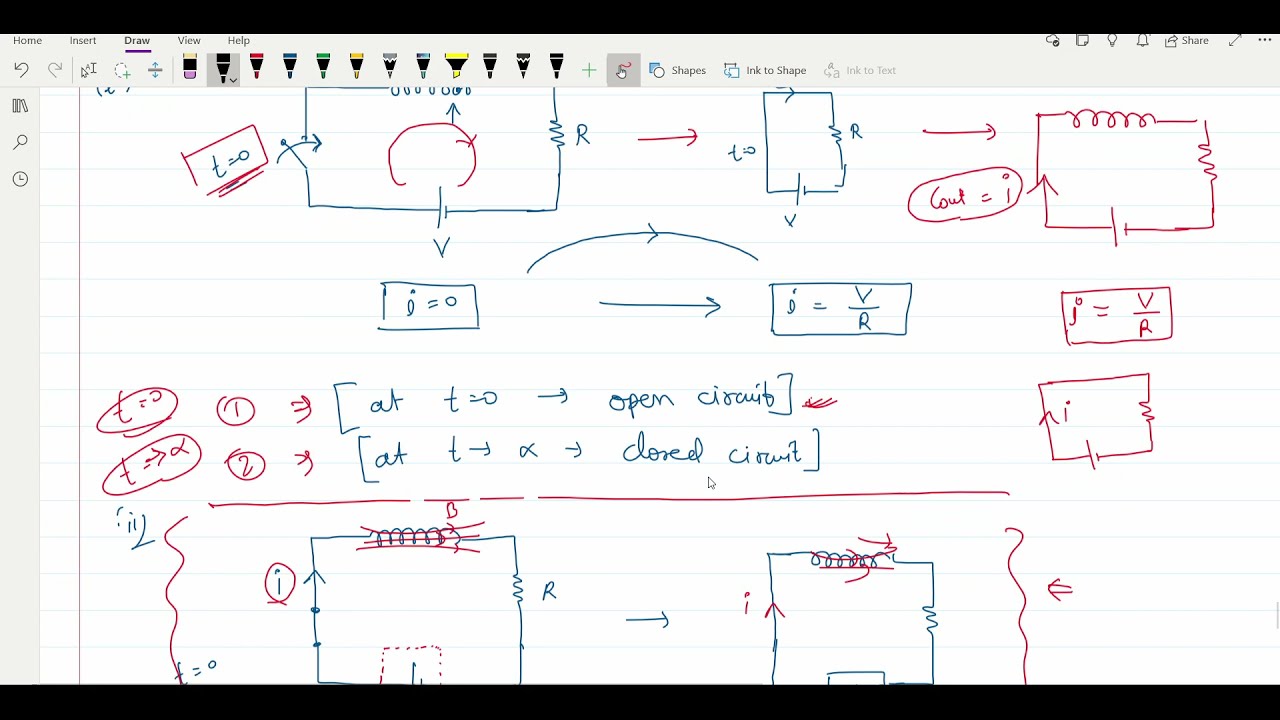 Home Insert Draw View Help Share
Shapes Ink to Shape Ink to Text
t=0
R
V
t=0
R
V
Cout = i
i = 0
i = V/R
i = V/R
t=0 ① ⇒ [at t=0 → open circuit]
t→α ② ⇒ [at t→ α → closed circuit]
i
ii)
B
i
R
i
t=0